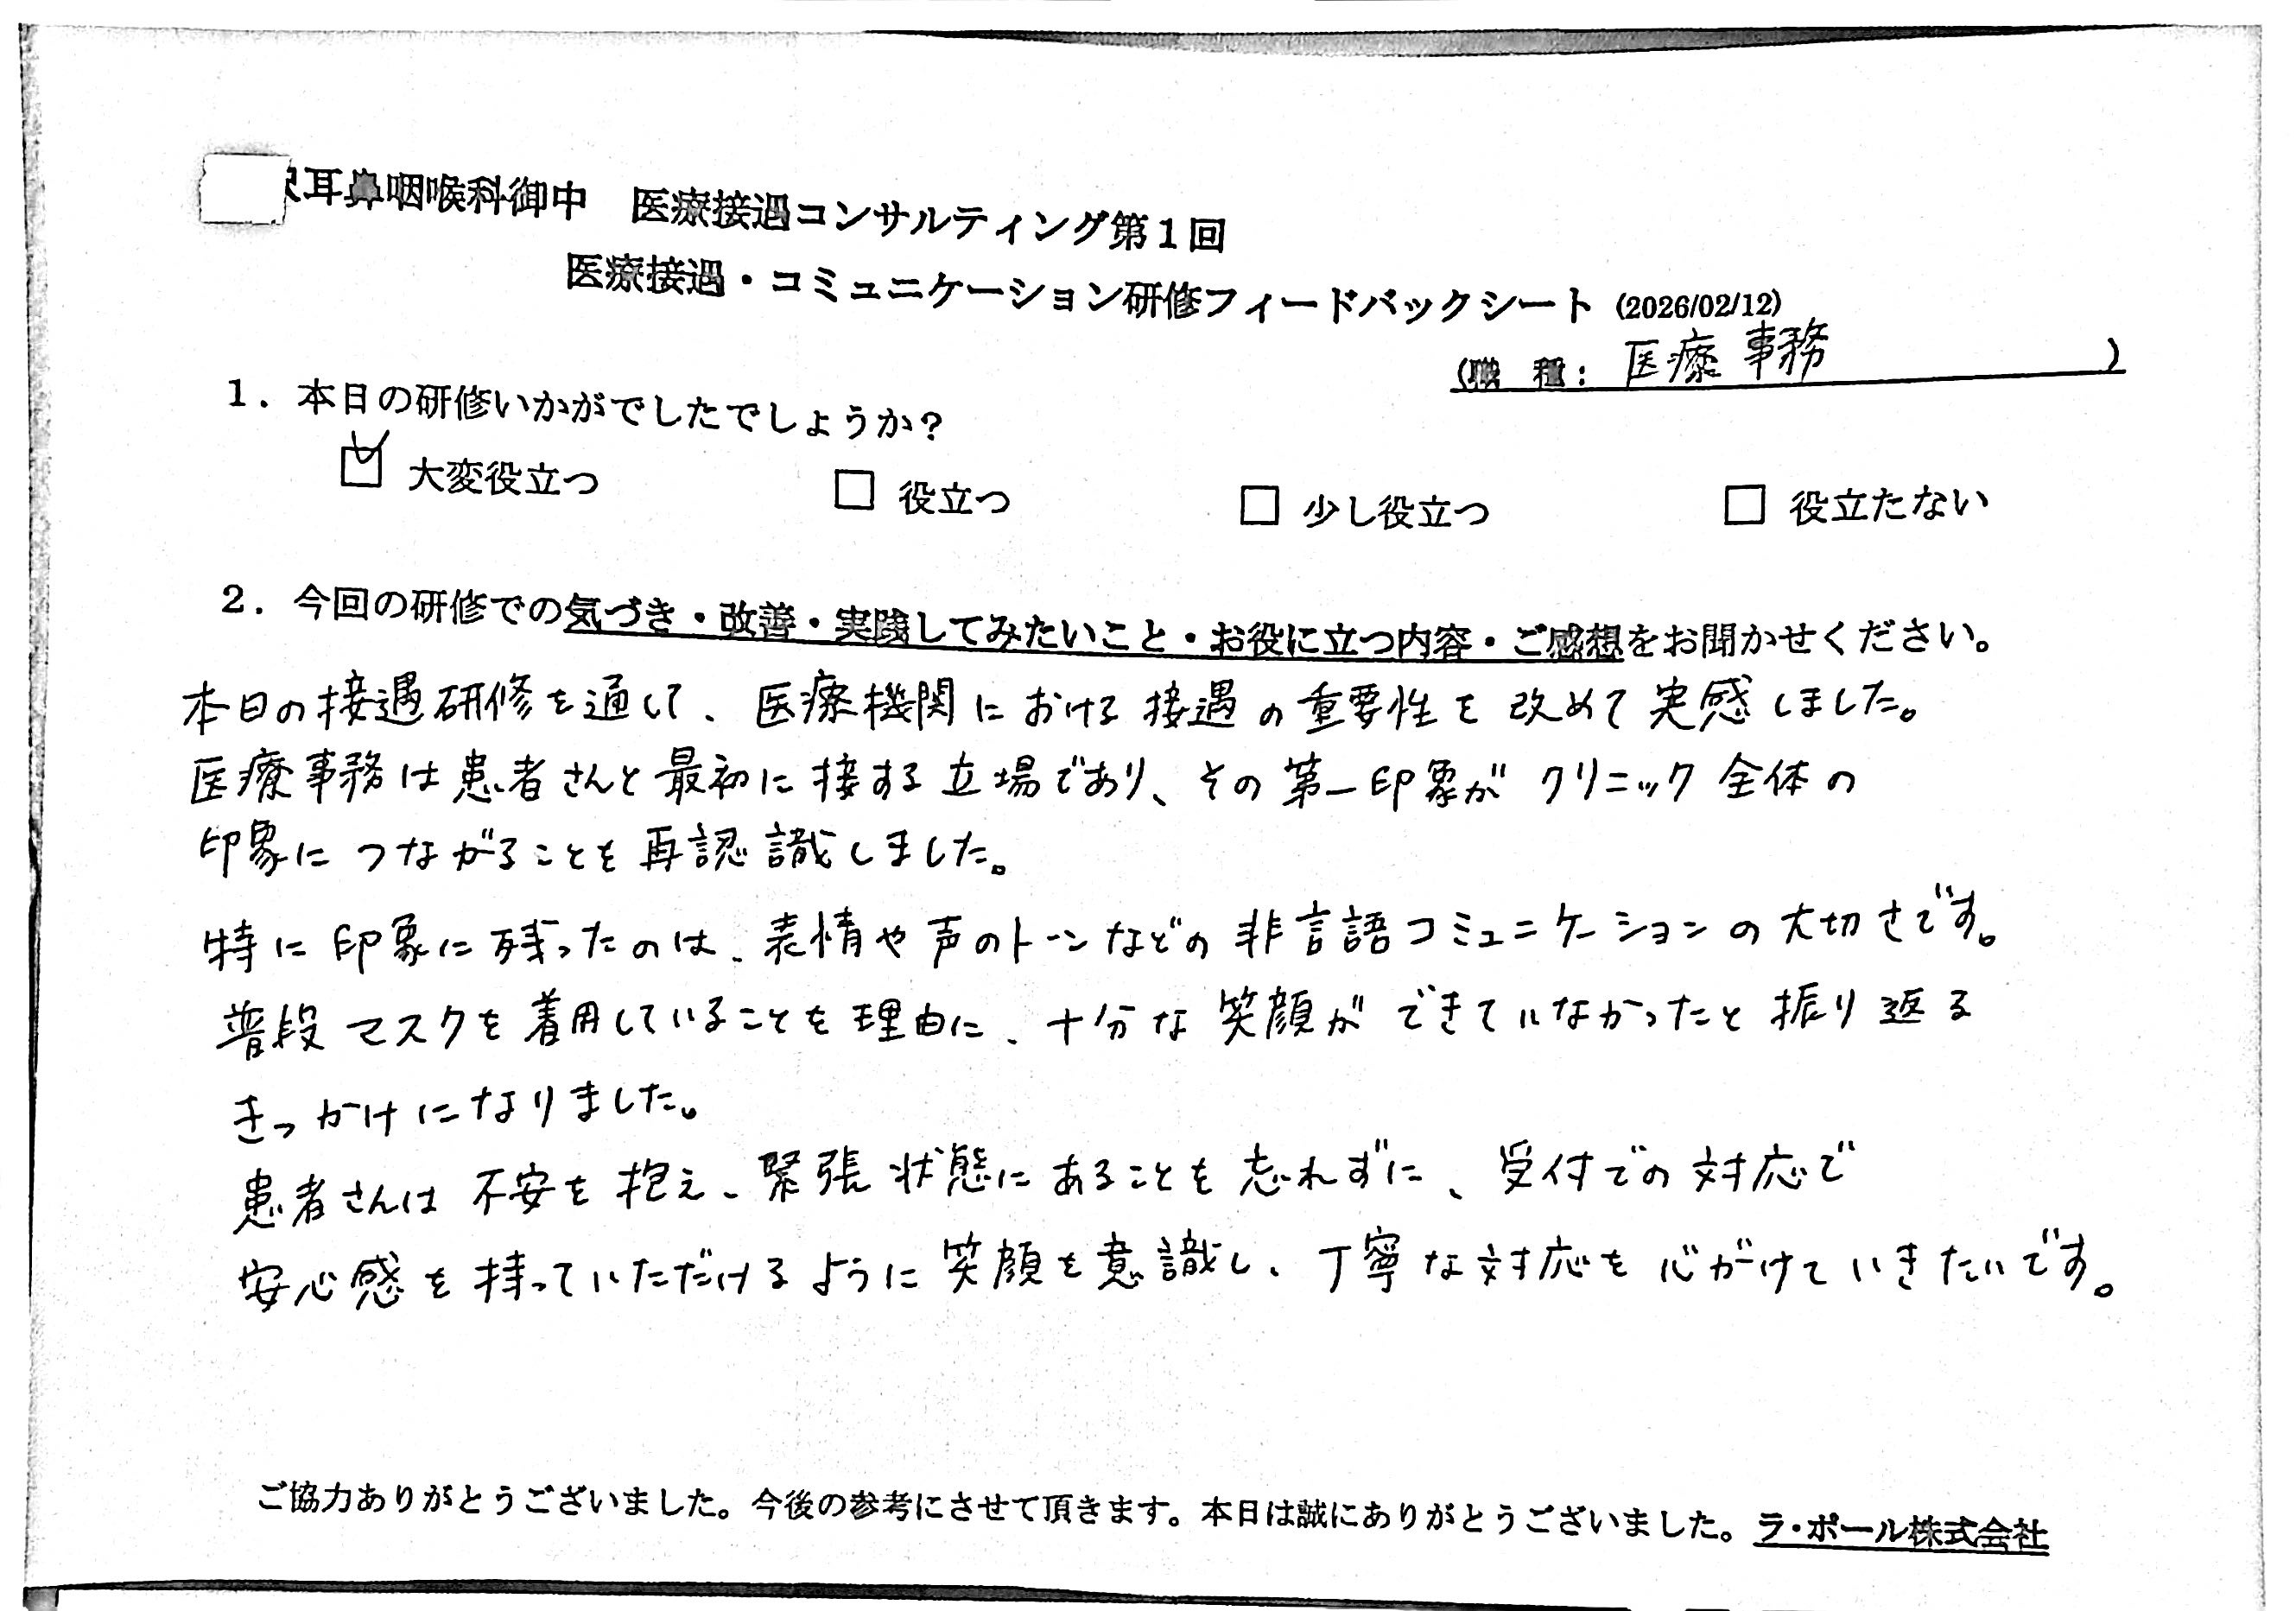 耳鼻咽喉科御中　医療接遇コンサルティング第１回
医療接遇・コミュニケーション研修フィードバックシート (2026/02/12)
(職　種： 医療事務 )
１．本日の研修いかがでしたでしょうか？
☑ 大変役立つ　□ 役立つ　□ 少し役立つ　□ 役立たない
２．今回の研修での気づき・改善・実践してみたいこと・お役に立つ内容・ご感想をお聞かせください。
本日の接遇研修を通して、医療機関における接遇の重要性を改めて実感しました。
医療事務は患者さんと最初に接する立場であり、その第一印象がクリニック全体の
印象につながることを再認識しました。
特に印象に残ったのは、表情や声のトーンなどの非言語コミュニケーションの大切さです。
普段マスクを着用していることを理由に、十分な笑顔ができていなかったと振り返る
きっかけになりました。
患者さんは不安を抱え、緊張状態にあることを忘れずに、受付での対応で
安心感を持っていただけるように笑顔を意識し、丁寧な対応を心がけていきたいです。
ご協力ありがとうございました。今後の参考にさせて頂きます。本日は誠にありがとうございました。ラ・ポール株式会社